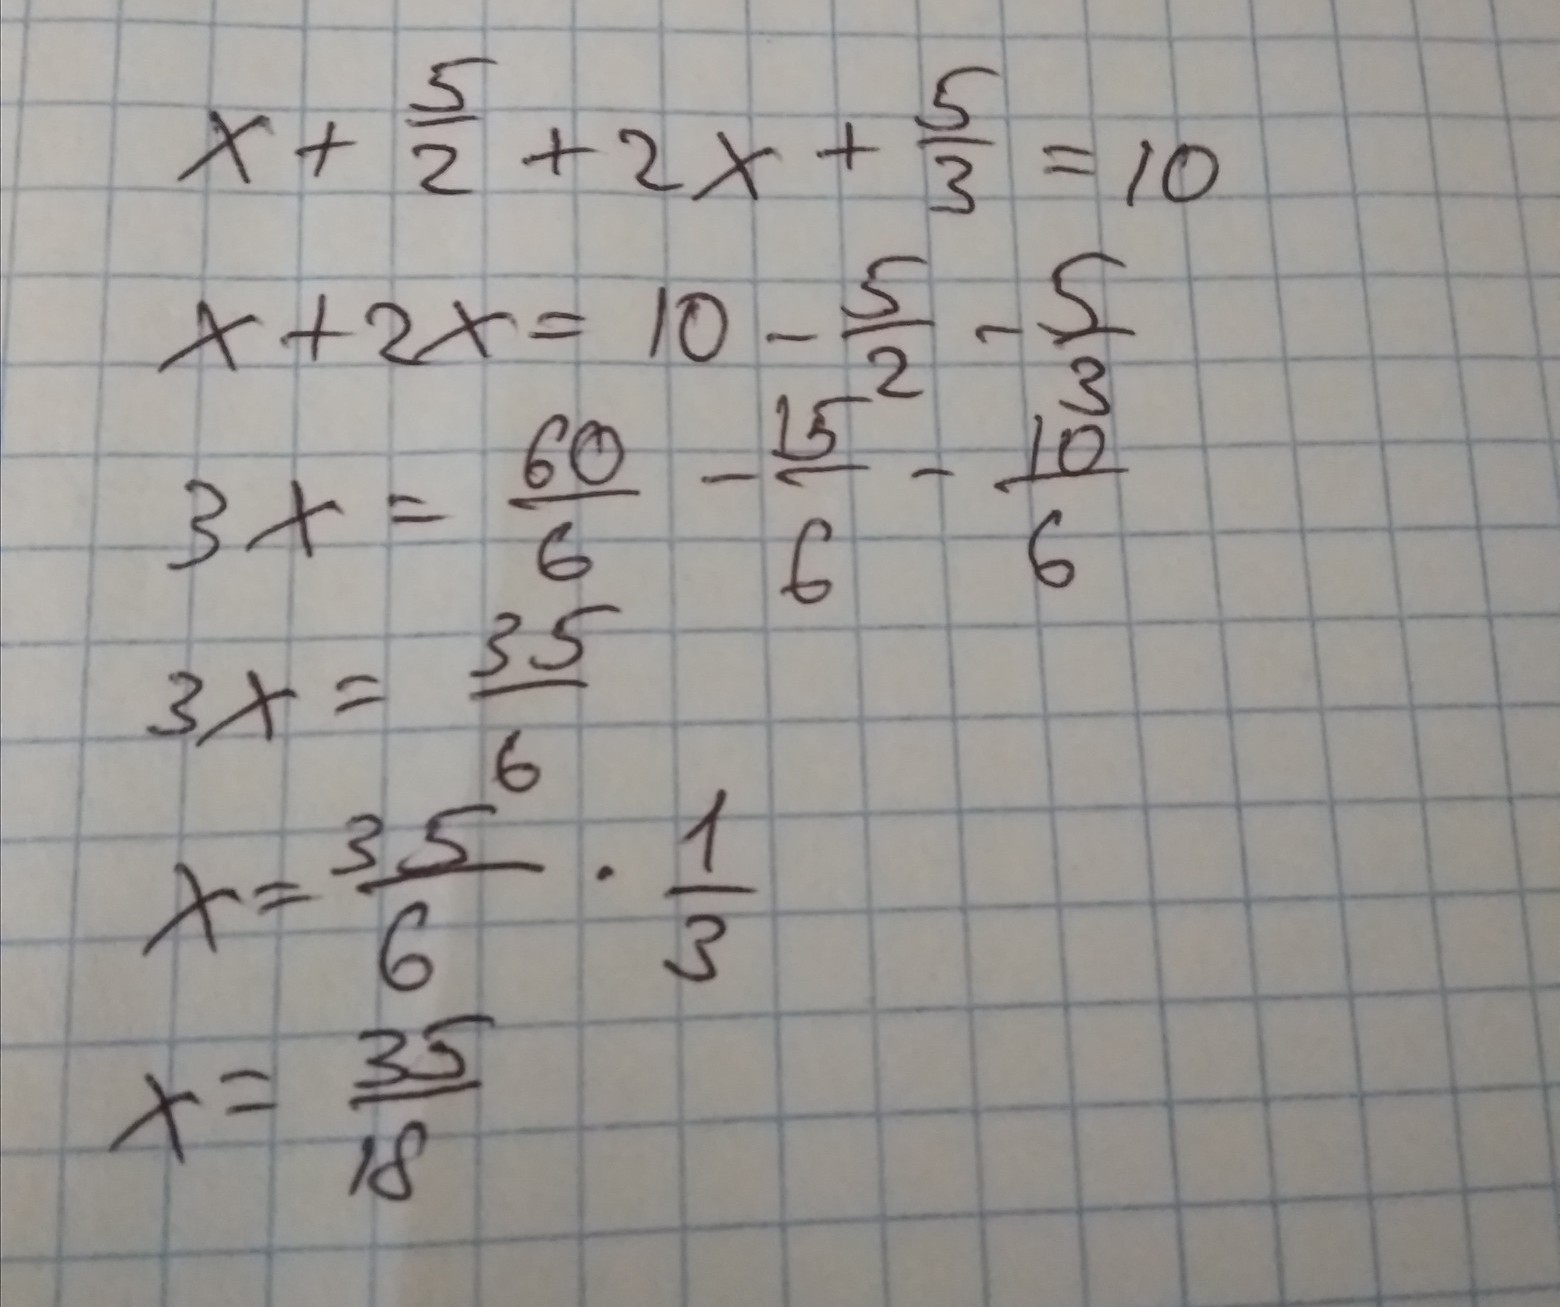 x + 5/2 + 2x + 5/3 = 10
x + 2x = 10 - 5/2 - 5/3
3x = 60/6 - 15/6 - 10/6
3x = 35/6
x = 35/6 · 1/3
x = 35/18